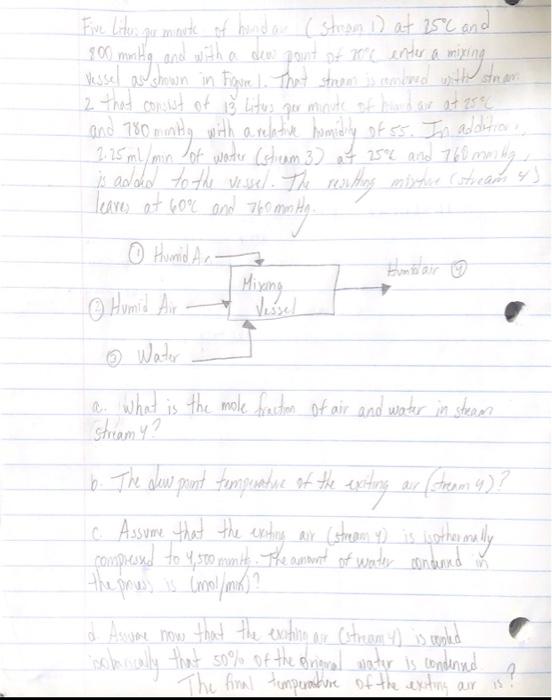 Five Liters per minute of humid air (stream 1) at 25°C and
800 mmHg and with a dew point of 20°C enter a mixing
vessel as shown in Figure 1. That stream is combined with stream
2 that consist of 13 Liters per minute of humid air at 25°C
and 780 mmHg with a relative humidity of 55. In addition,
2.25 ml/min of water (stream 3) at 25°C and 760 mmHg,
is added to the vessel. The resulting mixture (stream 4)
leaves at 60°C and 760 mmHg.
① Humid Air
Humid air ④
Mixing
② Humid Air
Vessel
③ Water
a. What is the mole fraction of air and water in stream
stream 4?
b. The dew point temperature of the exiting air (stream 4)?
c. Assume that the exiting air (stream 4) is isothermally
compressed to 4,500 mmHg. The amount of water condensed in
the process is (mol/min)?
d. Assume now that the exiting air (stream 4) is cooled
isobarically that 50% of the original water is condensed
The final temperature of the exiting air is?